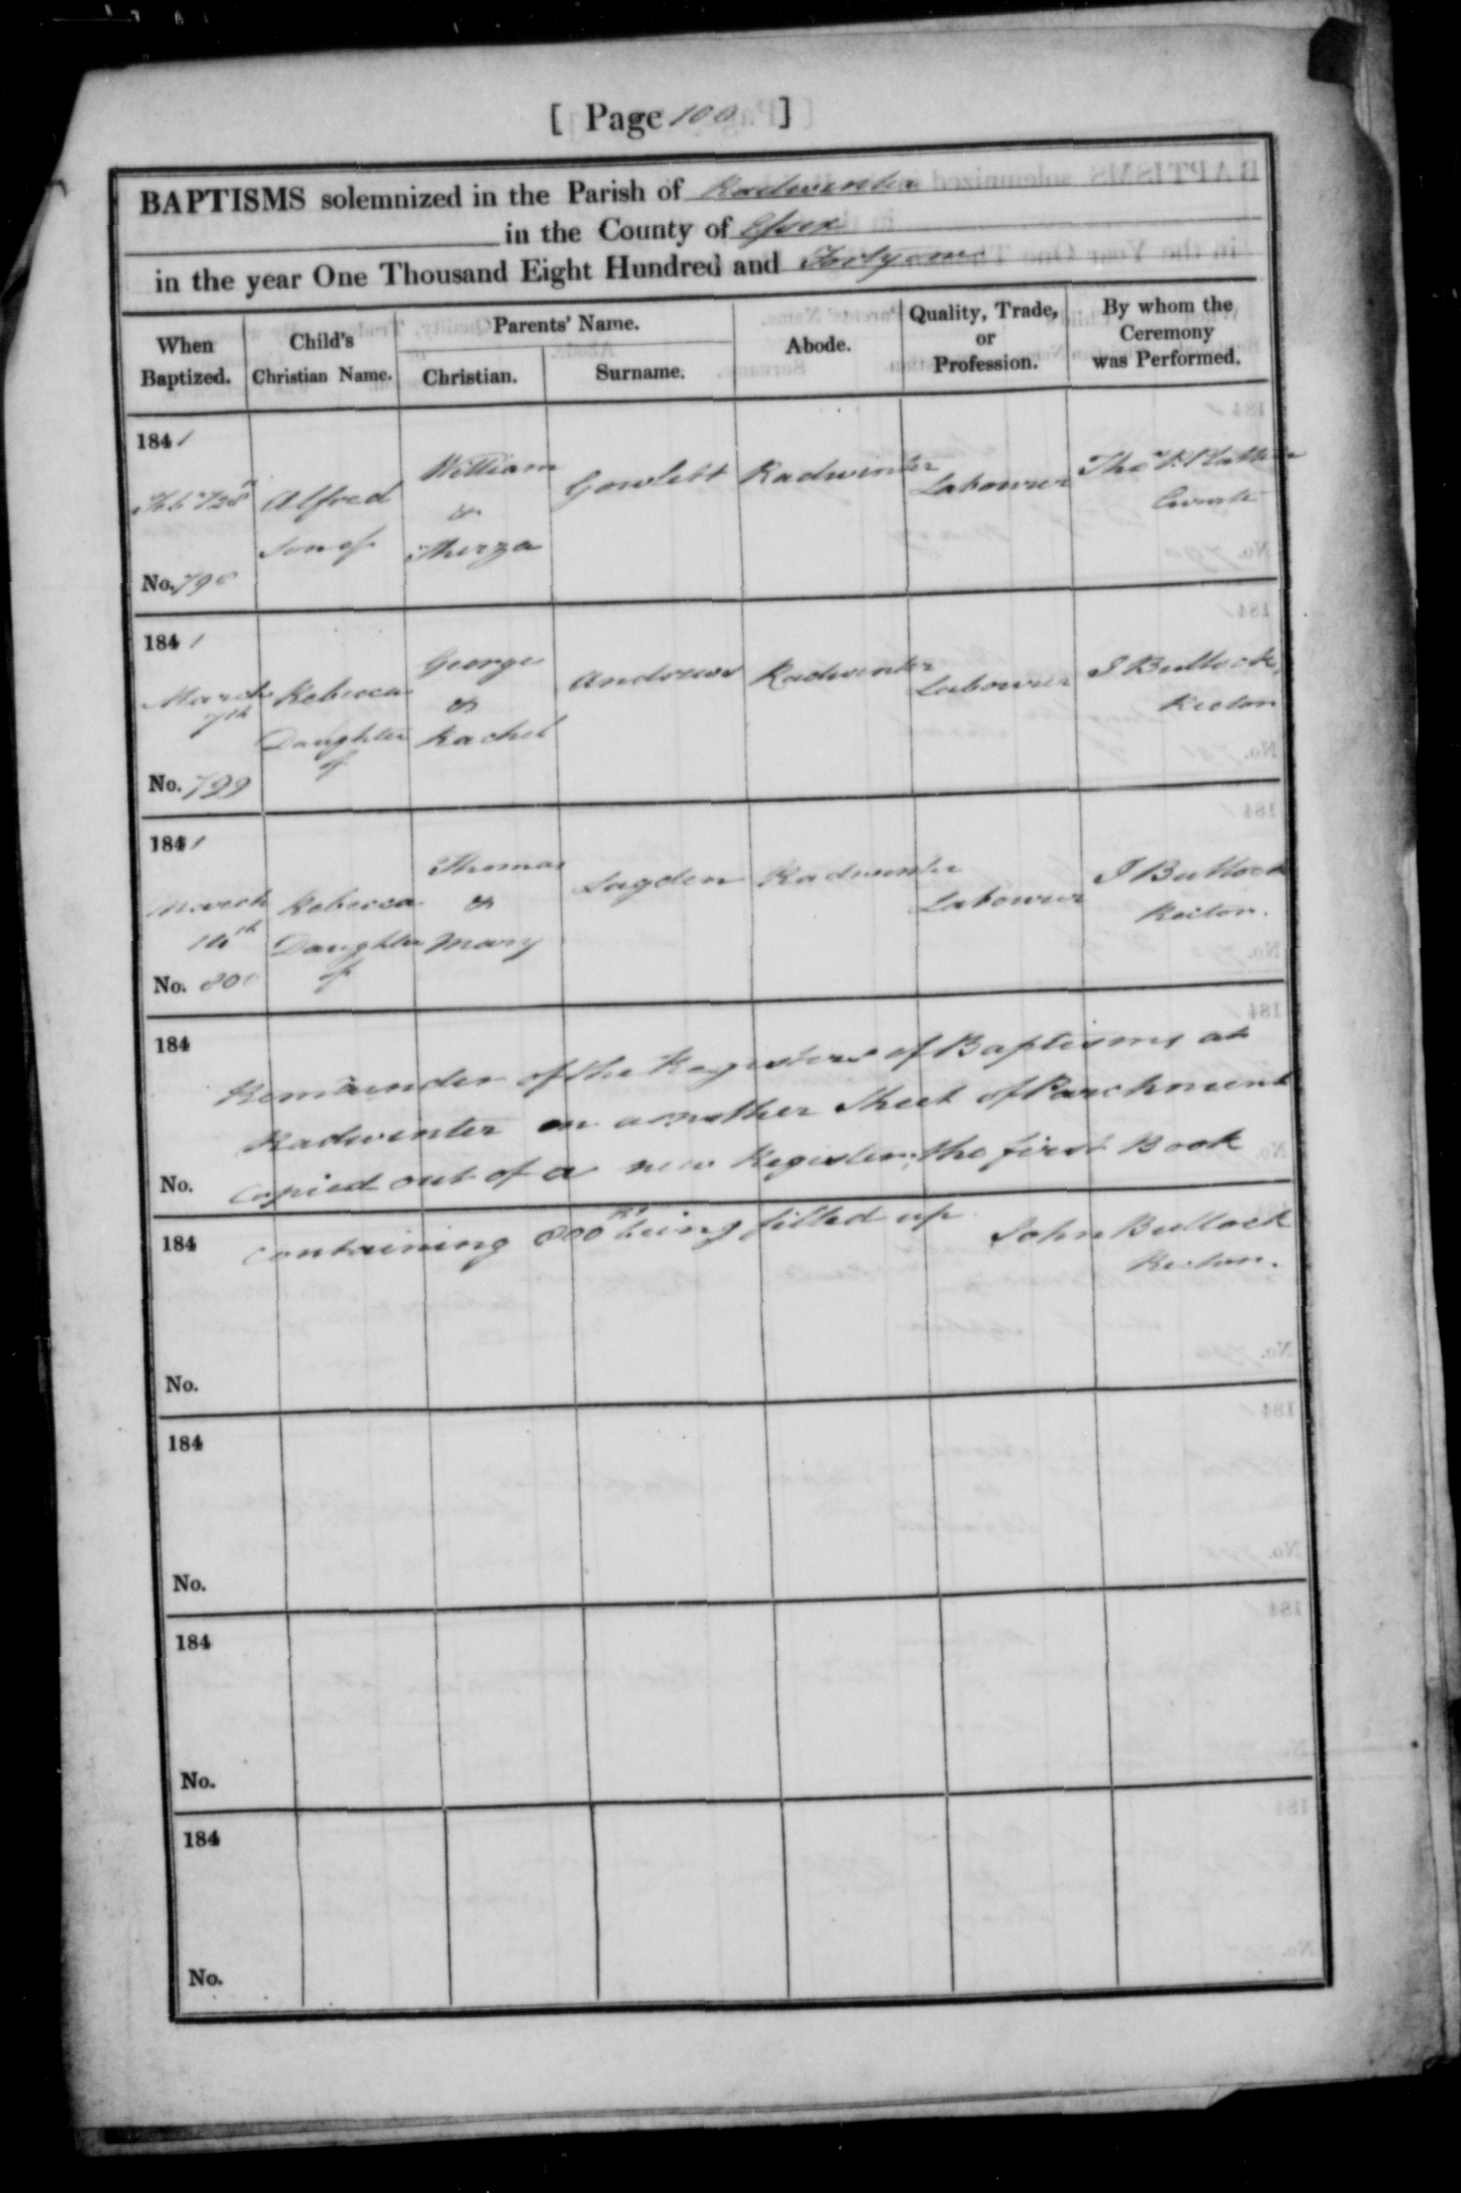 [ Page 100 ]
BAPTISMS solemnized in the Parish of Radwinter
in the County of Essex
in the year One Thousand Eight Hundred and Forty one
When Baptized. Child's Christian Name. Parents' Name. Christian. Surname. Abode. Quality, Trade, or Profession. By whom the Ceremony was Performed.
1841
William
Feby 28 Alfred & Gowlett Radwinter Labourer Thos
Son of Thirza Curate
No. 798
1841
George
March Rebecca & Andrews Radwinter Labourer J Bullock
7th Rector
Daughter Rachel
of
No. 799
1841
Thomas
March Rebecca & Sagden Radwinter Labourer J Bullock
14th Daughter Mary Rector.
No. 800 of
184
Remainder of the Registers of Baptisms at
Radwinter on another Sheet of Parchment
No. copied out of a new Register, the first Book
184 containing 800 being filled up John Bullock
Rector.
No.
184
No.
184
No.
184
No.